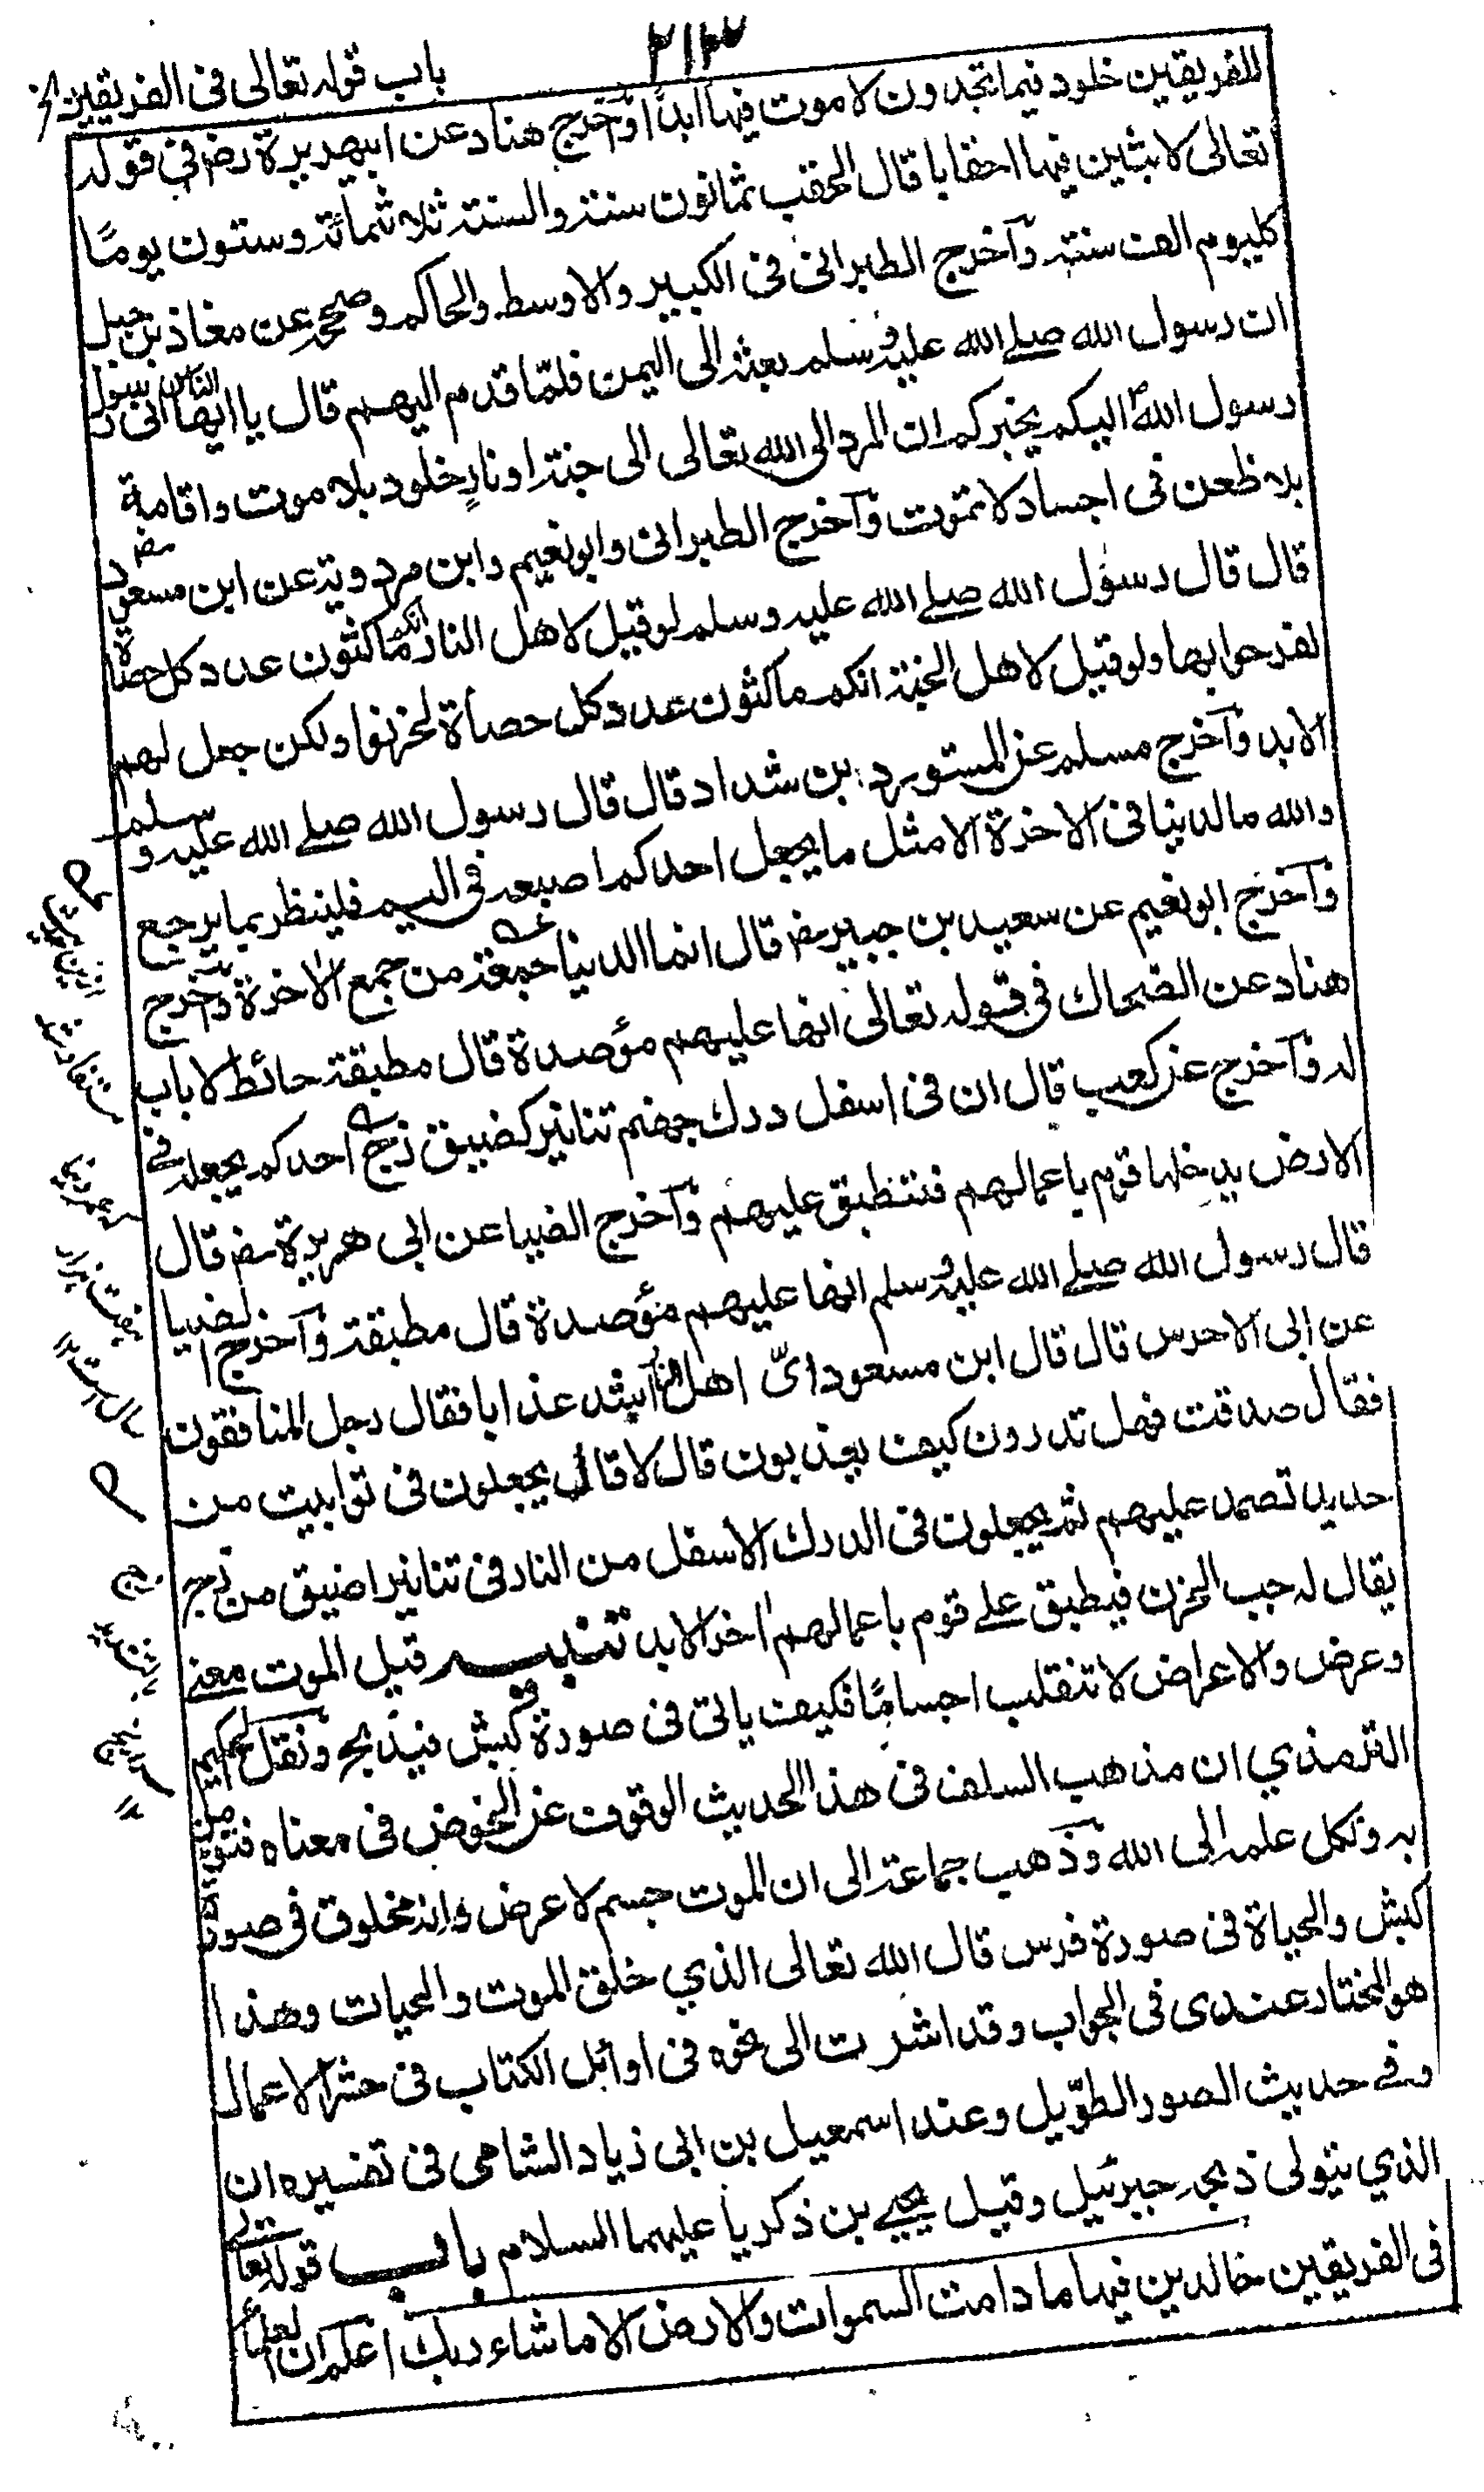 ٢١٣
باب قوله تعالى فى الفريقين الخ
للفريقين خلود فيما تجدون لا موت فيها ابدا وآخرج هناد عن ابيهريرة رضر فى قوله
تعالى لابثين فيها احقابا قال الحقب ثمانون سنة والسنة ثلاثمائة وستون يوما
كليوم الف سنة وآخرج الطبرانى فى الكبير والاوسط والحاكم وصححه عن معاذ بن جبل
ان رسول الله صلے الله عليه وسلم بعثه الى اليمن فلما قدم اليهم قال يا ايها الناس انى رسول
رسول الله اليكم يخبركم ان المرد الى الله تعالى الى جنة او نار خلود بلا موت واقامة
بلا ظعن فى اجساد لا تموت وآخرج الطبرانى وابو نعيم وابن مردويه عن ابن مسعود رضر
قال قال رسول الله صلے الله عليه وسلم لو قيل لاهل النار انكم ماكثون عدد كل حصاة
لفرحوا بها ولو قيل لاهل الجنة انكم ماكثون عدد كل حصاة لحزنوا ولكن جعل لهم
الابد وآخرج مسلم عن المستورد بن شداد قال قال رسول الله صلے الله عليه وسلم
والله ما الدنيا فى الاخرة الا مثل ما يجعل احدكم اصبعه فى اليم فلينظر بما يرجع
وآخرج ابو نعيم عن سعيد بن جبير رضر قال انما الدنيا جمعة من جمع الاخرة وآخرج
هناد عن الضحاك فى قوله تعالى انها عليهم مؤصدة قال مطبقة حائط لا باب
له وآخرج عن كعب قال ان فى اسفل درك جهنم تنانير كضيق زج احدكم يجعله فے
الارض يدخلها قوم باعمالهم فتنطبق عليهم وآخرج الضيا عن ابى هريرة رضر قال
قال رسول الله صلے الله عليه وسلم انها عليهم مؤصدة قال مطبقة وآخرج الضيا
عن ابى الاحرس قال قال ابن مسعود اىّ اهل النار اشد عذابا فقال رجل المنافقون
فقال صدقت فهل تدرون كيف يعذبون قال لا قال يجعلون فى توابيت من
حديد تصمد عليهم ثم يجعلون فى الدرك الاسفل من النار فى تنانير اضيق من زج
يقال له جب الحزن فيطبق علے قوم باعمالهم اخر الابد تنبيه قيل الموت معنے
وعرض والاعراض لا تنقلب اجساما فكيف ياتى فى صورة كبش فيذبح ونقل الحكيم
الترمذي ان مذهب السلف فى هذا الحديث الوقوف عن الخوض فى معناه فنؤمن
به ونكل علمه الى الله وذهب جماعة الى ان الموت جسم لا عرض وانه مخلوق فى صورة
كبش والحياة فى صورة فرس قال الله تعالى الذي خلق الموت والحيات وهذا
هو المختار عندى فى الجواب وقد اشرت الى نحوه فى اوائل الكتاب فى حشر الاعمال
وفے حديث الصور الطويل وعند اسمعيل بن ابى زياد الشامى فى تفسيره ان
الذي يتولى ذبحه جبرئيل وقيل يحيے بن ذكريا عليهما السلام باب قوله تعالے
فى الفريقين خالدين فيها ما دامت السموات والارض الا ما شاء ربك اعلم ان العلماء